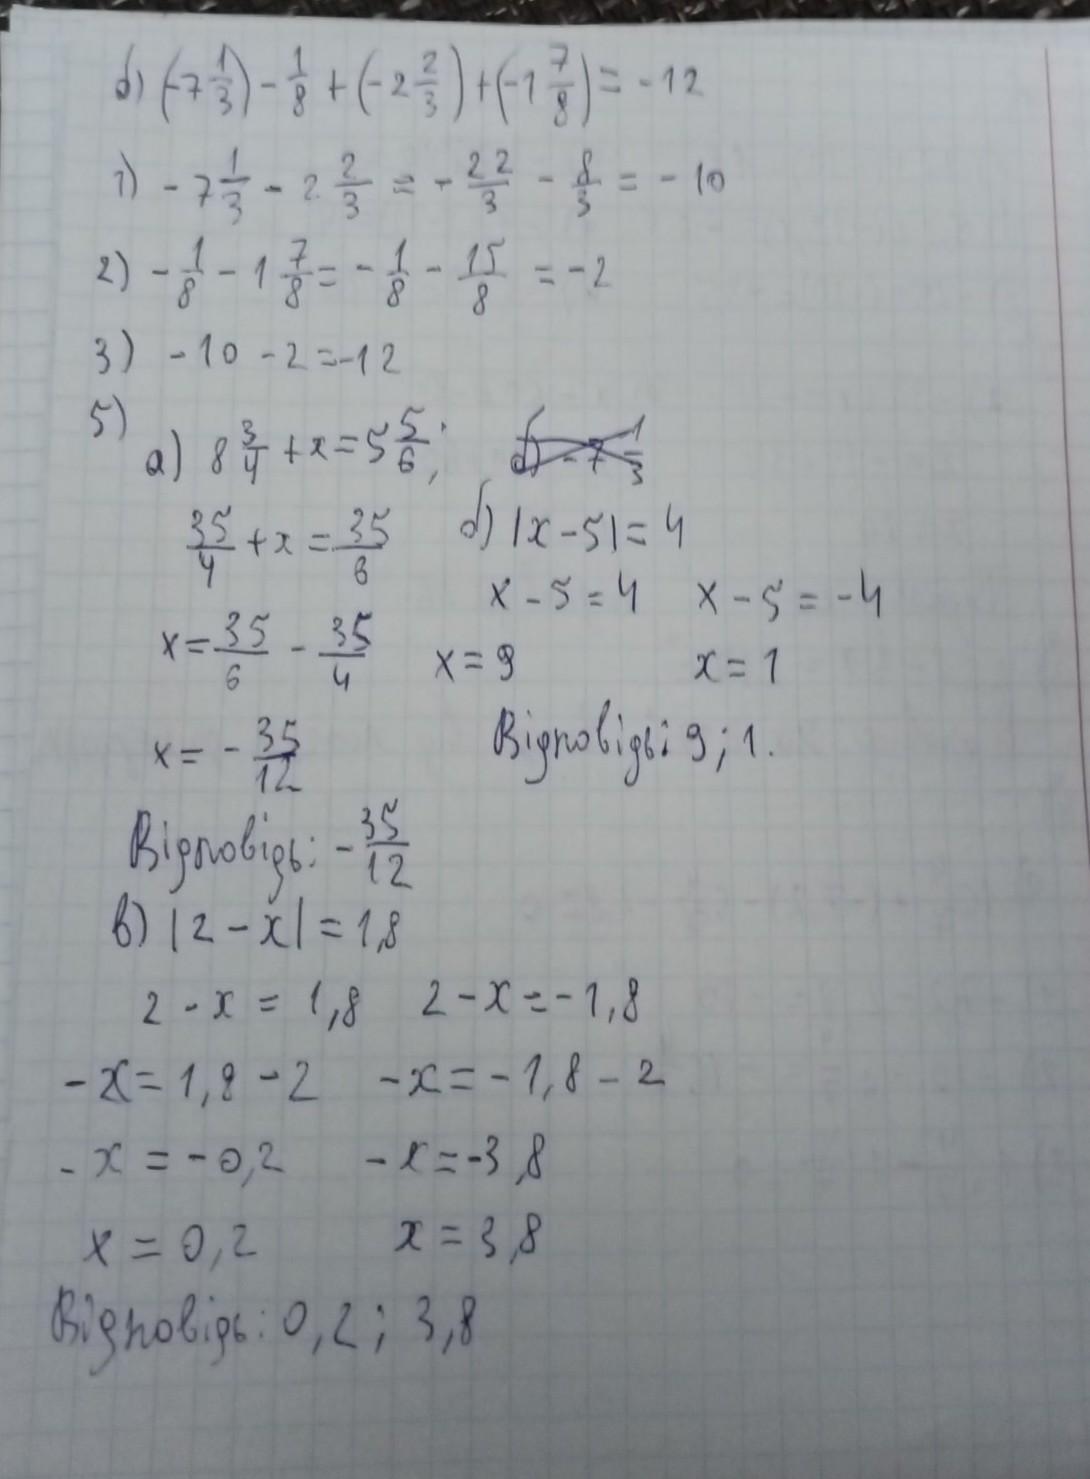 б) (-7 1/3) - 1/8 + (-2 2/3) + (-1 7/8) = -12
1) - 7 1/3 - 2 2/3 = - 22/3 - 8/3 = - 10
2) - 1/8 - 1 7/8 = - 1/8 - 15/8 = -2
3) - 10 - 2 = -12
5)
а) 8 3/4 + x = 5 5/6;
35/4 + x = 35/6
x = 35/6 - 35/4
x = - 35/12
Відповідь: - 35/12
б) - 7 1/3
б) |x - 5| = 4
x - 5 = 4 x - 5 = -4
x = 9 x = 1
Відповідь: 9; 1.
в) |2 - x| = 1,8
2 - x = 1,8 2 - x = -1,8
- x = 1,8 - 2 - x = - 1,8 - 2
- x = -0,2 - x = -3,8
x = 0,2 x = 3,8
Відповідь: 0,2; 3,8